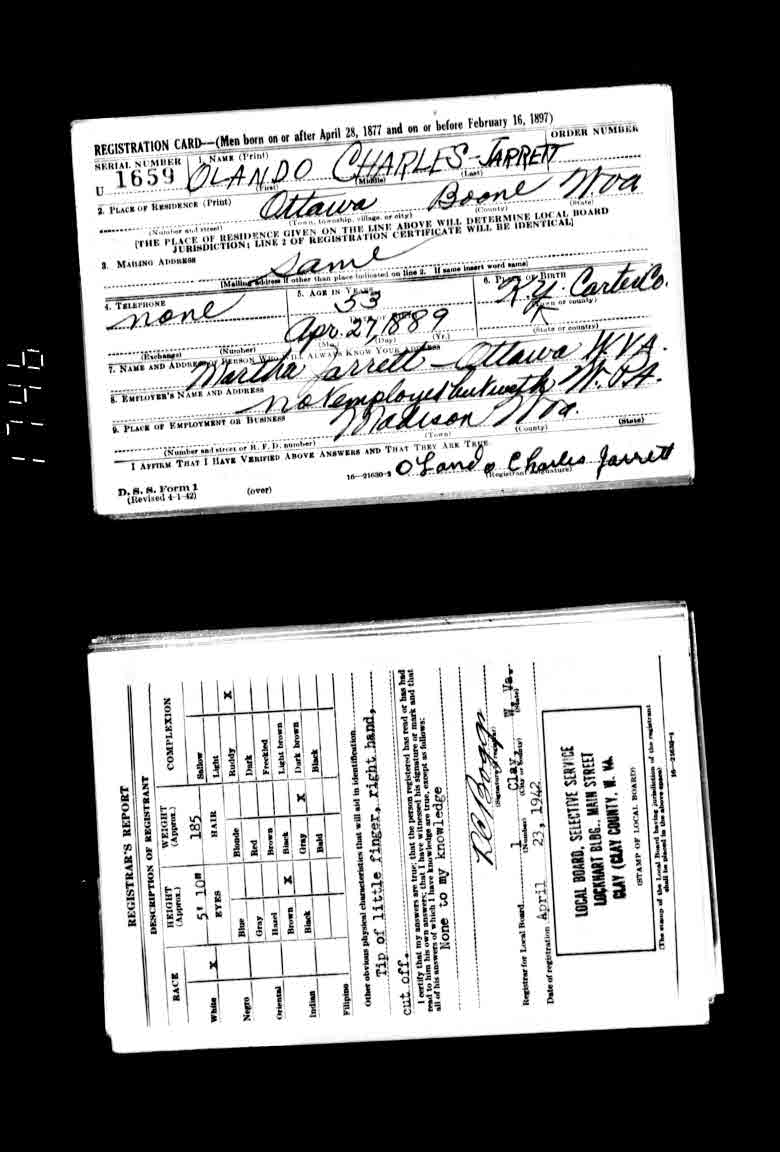 REGISTRATION CARD—(Men born on or after April 28, 1877 and on or before February 16, 1897)
SERIAL NUMBER
1. NAME (Print)
ORDER NUMBER
U 1659
OLANDO CHARLES-JARRETT
(First) (Middle) (Last)
2. PLACE OF RESIDENCE (Print)
Ottawa Boone W.va
(Number and street) (Town, township, village, or city) (County) (State)
[THE PLACE OF RESIDENCE GIVEN ON THE LINE ABOVE WILL DETERMINE LOCAL BOARD
JURISDICTION; LINE 2 OF REGISTRATION CERTIFICATE WILL BE IDENTICAL]
3. MAILING ADDRESS
Same
[Mailing address if other than place indicated on line 2. If same insert word same]
4. TELEPHONE
5. AGE IN YEARS
6. PLACE OF BIRTH
none
53
K.Y. Carter Co.
DATE OF BIRTH
(Town or county)
Apr. 27 1889
(Exchange) (Number) (Mo.) (Day) (Yr.) (State or country)
7. NAME AND ADDRESS OF PERSON WHO WILL ALWAYS KNOW YOUR ADDRESS
Martha Jarrett - Ottawa W.VA.
8. EMPLOYER'S NAME AND ADDRESS
not employed but with W.P.A.
9. PLACE OF EMPLOYMENT OR BUSINESS
Madison W.va.
(Number and street or R. F. D. number) (Town) (County) (State)
I AFFIRM THAT I HAVE VERIFIED ABOVE ANSWERS AND THAT THEY ARE TRUE.
D. S. S. Form 1
(Revised 4-1-42)
(over)
16—21630-2
OLando Charles Jarrett
(Registrant's signature)
1746
REGISTRAR'S REPORT
DESCRIPTION OF REGISTRANT
RACE
HEIGHT (Approx.)
WEIGHT (Approx.)
COMPLEXION
5' 10"
185
EYES
HAIR
White X
Negro
Oriental
Indian
Filipino
Blue
Gray
Hazel
Brown X
Black
Blonde
Red
Brown
Black
Gray X
Bald
Sallow
Light
Ruddy X
Dark
Freckled
Light brown
Dark brown
Black
Other obvious physical characteristics that will aid in identification
Tip of little finger, right hand,
cut off.
I certify that my answers are true; that the person registered has read or has had
read to him his own answers; that I have witnessed his signature or mark and that
all of his answers of which I have knowledge are true, except as follows:
None to my knowledge
R C Boggs
(Signature of registrar)
Registrar for Local Board 1 Clay, W. Va.
(Number) (City or county) (State)
Date of registration April 23, 1942
LOCAL BOARD, SELECTIVE SERVICE
LOCKHART BLDG., MAIN STREET
CLAY (CLAY COUNTY, W. VA.
(STAMP OF LOCAL BOARD)
(The stamp of the Local Board having jurisdiction of the registrant
shall be placed in the above space)
16—21630-1